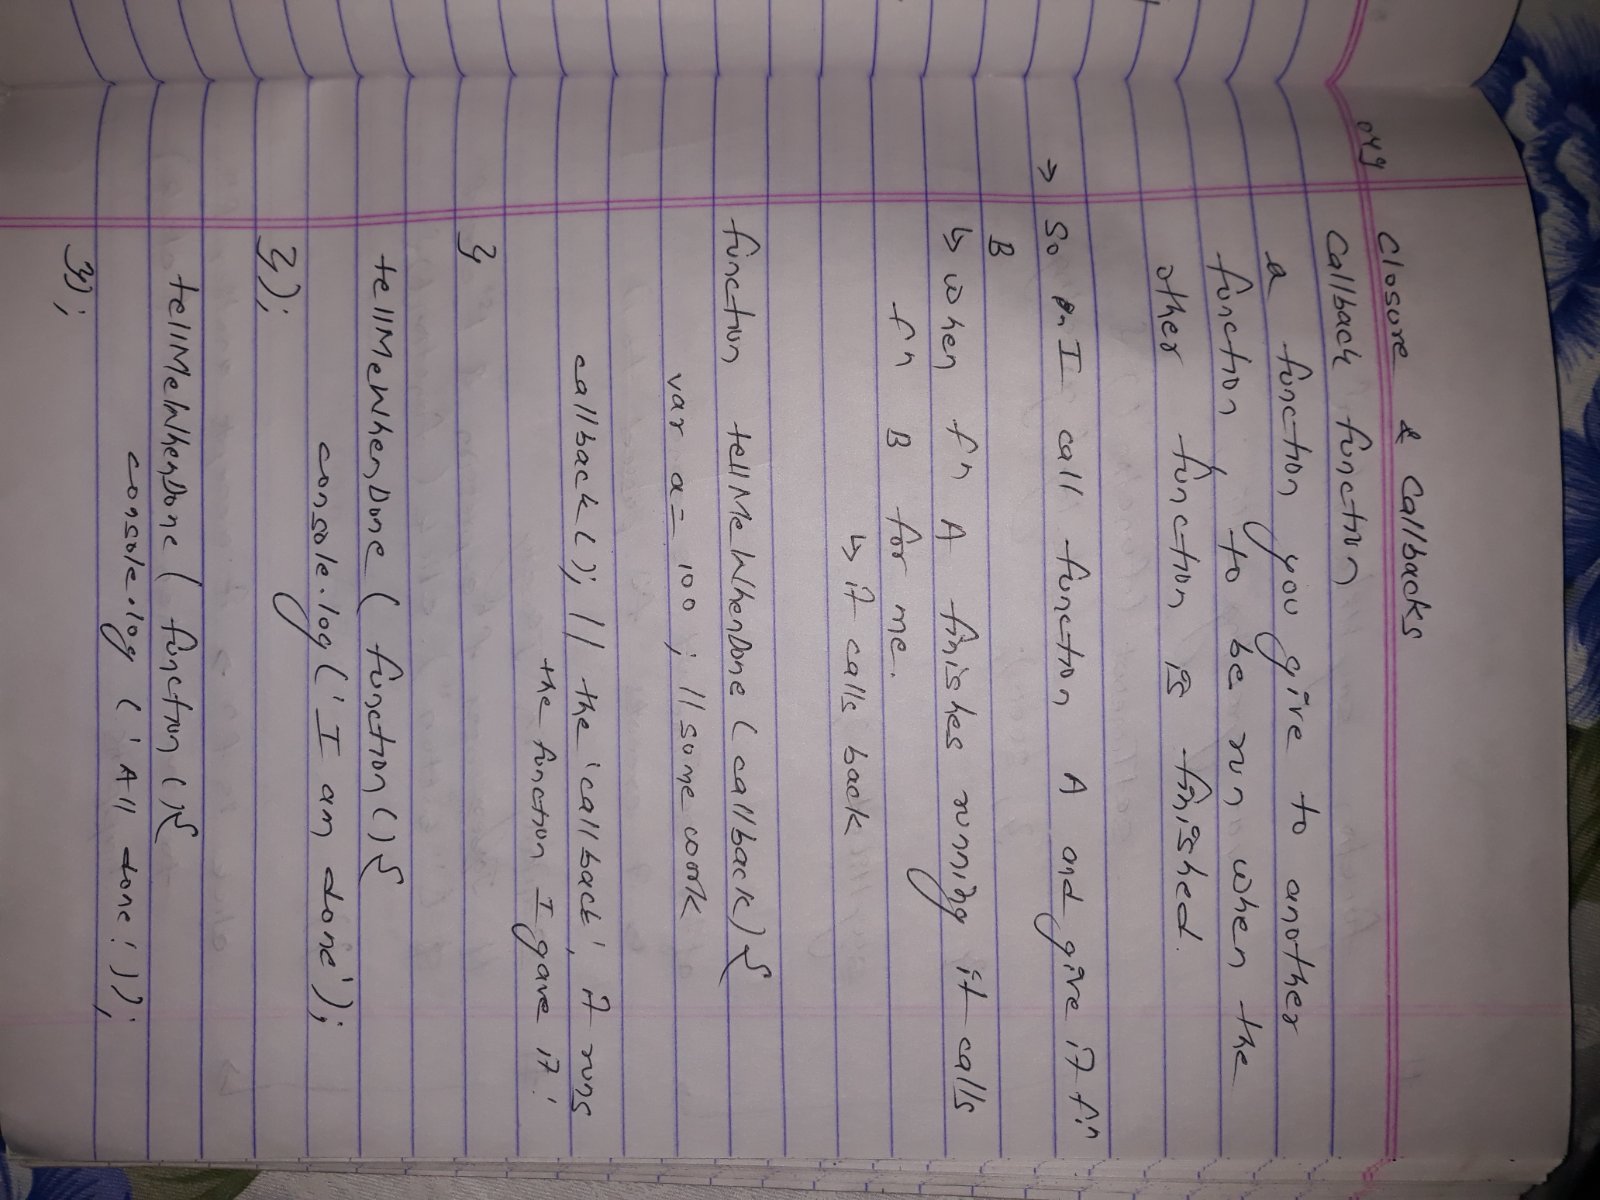 Closure & Callbacks
049
Callback function
a function you give to another
function, to be run when the
other function is finished.
→ So I call function A and give it fn
B
↳ when fn A finishes running it calls
fn B for me.
↳ it calls back
function tellMeWhenDone (callback) {
var a = 100 ; // some work
callback(); // the 'callback', it runs
the function I gave it!
}
tellMeWhenDone ( function () {
console.log (' I am done');
});
tellMeWhenDone ( function () {
console.log (' All done! ));
});